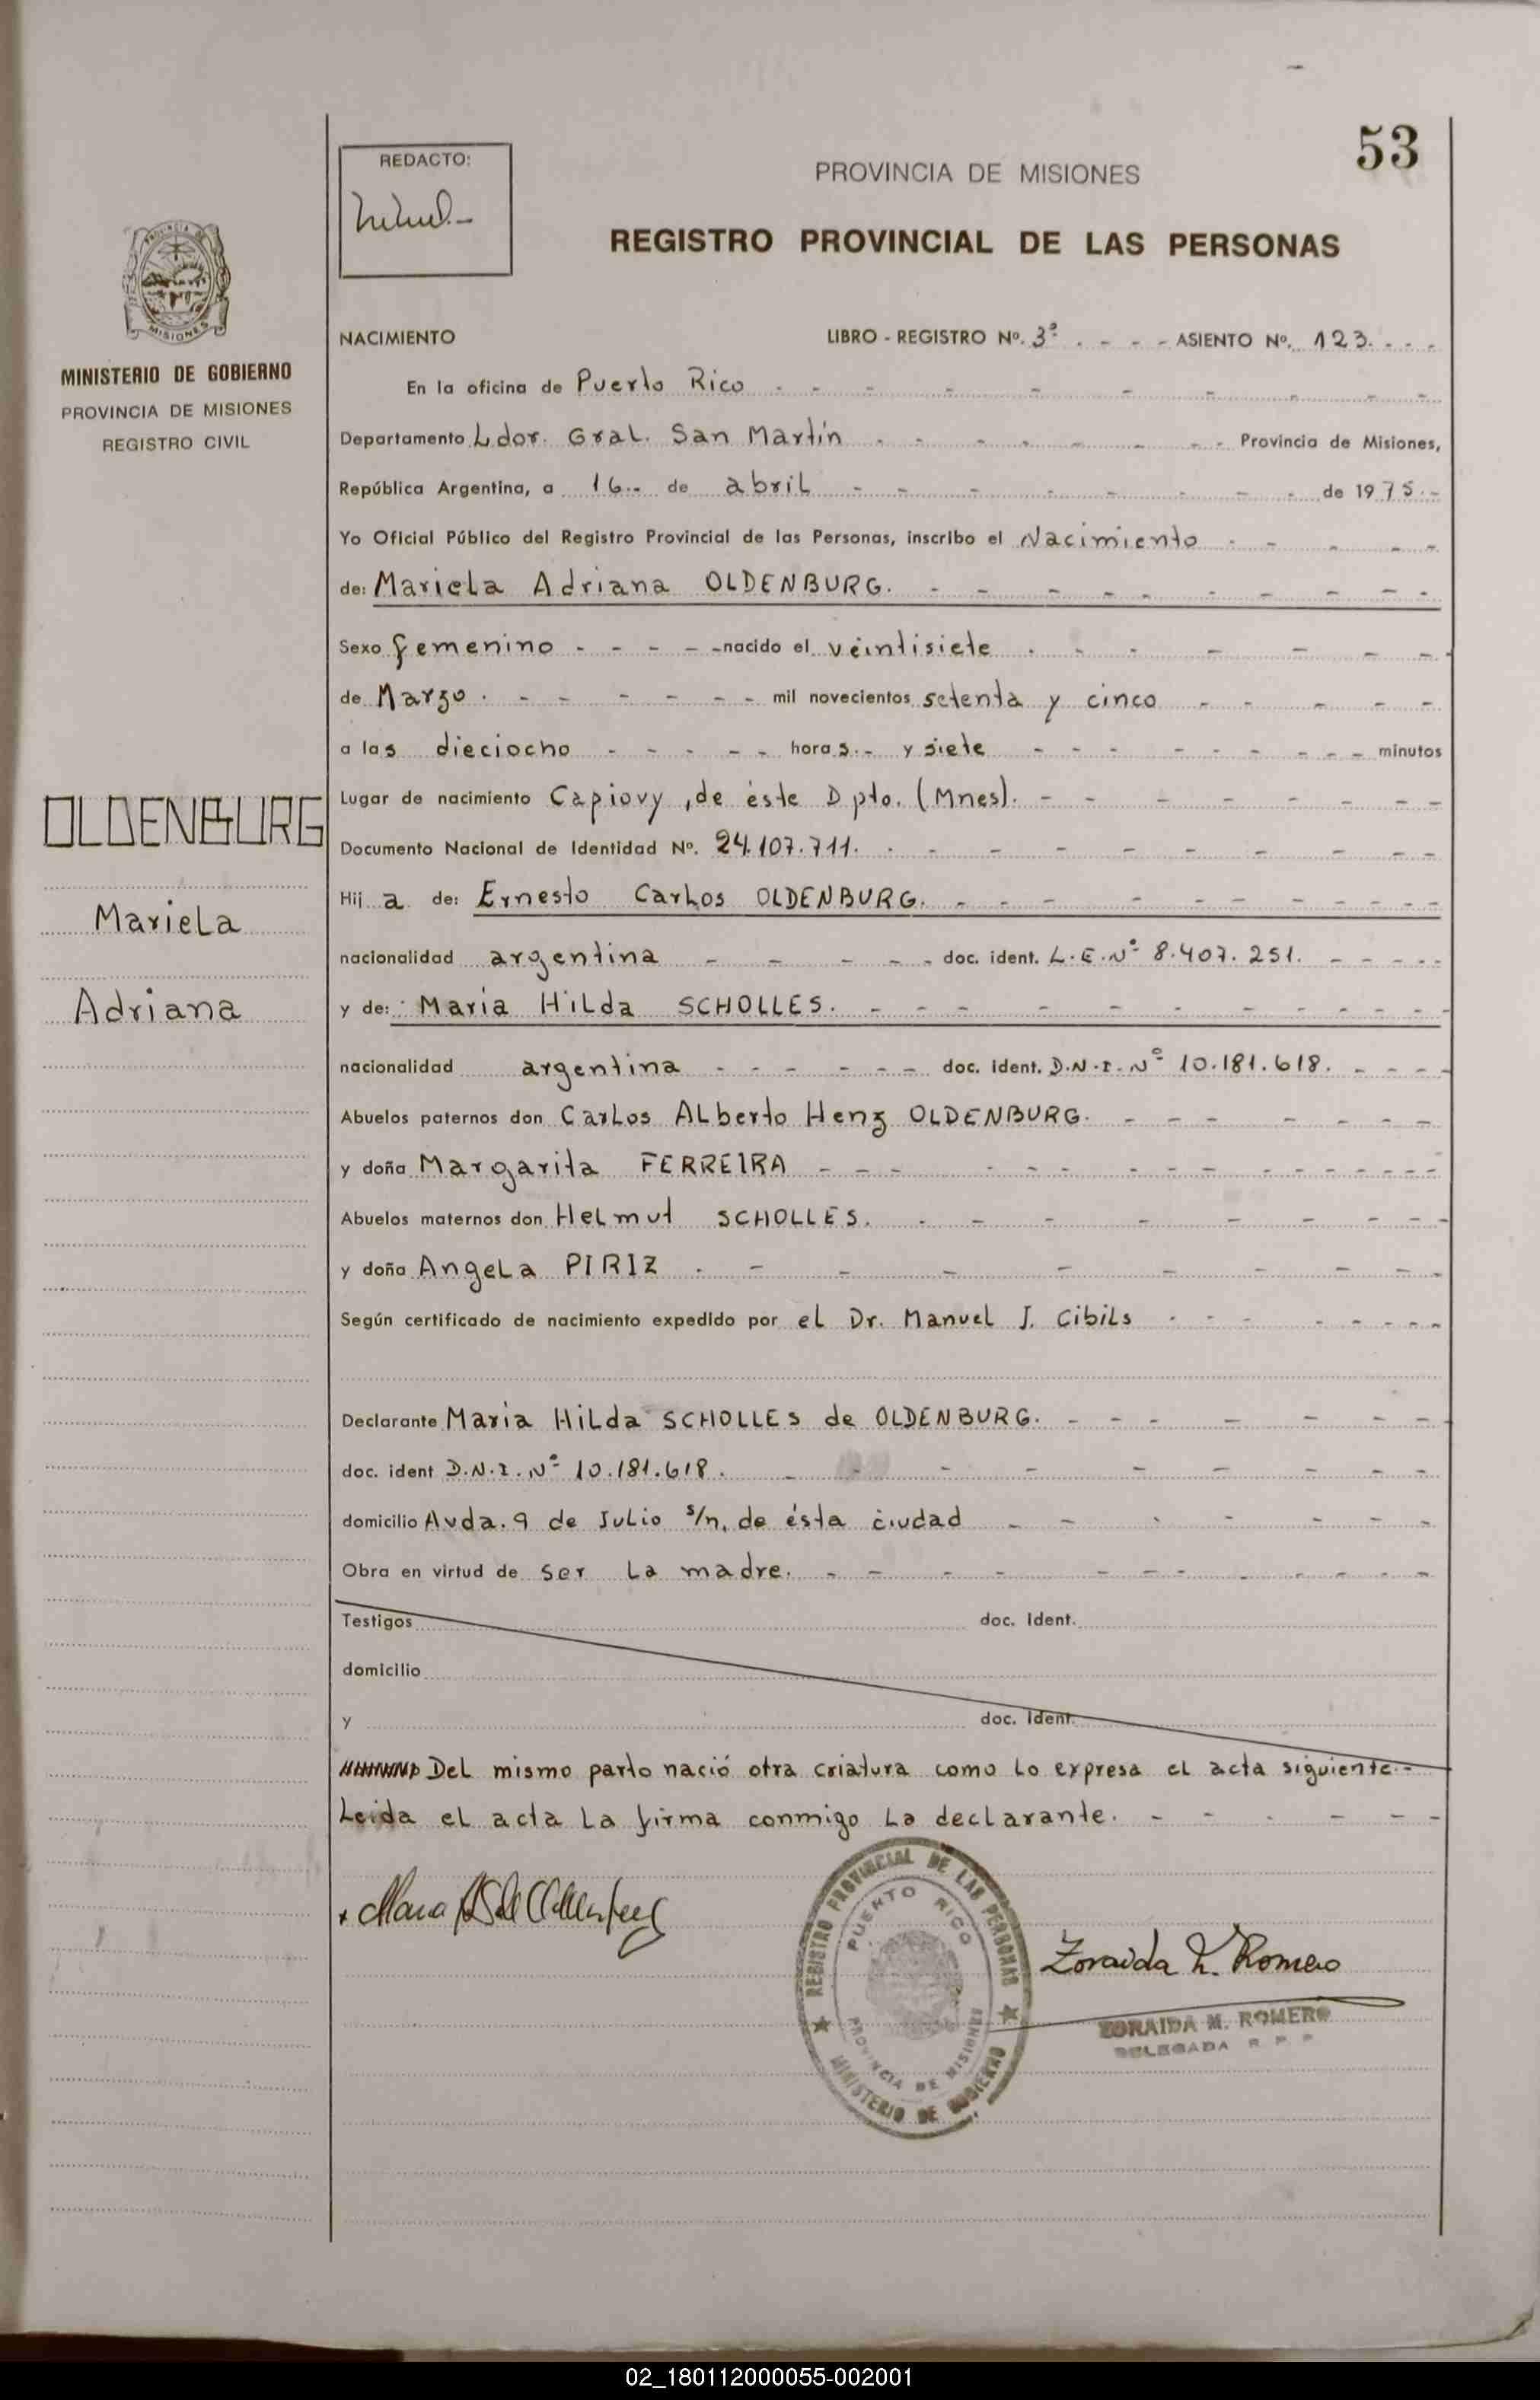 53
REDACTO:
PROVINCIA DE MISIONES
REGISTRO PROVINCIAL DE LAS PERSONAS
PROVINCIA DE
MISIONES
MINISTERIO DE GOBIERNO
PROVINCIA DE MISIONES
REGISTRO CIVIL
OLDENBURG
Mariela
Adriana
NACIMIENTO LIBRO - REGISTRO Nº. 3º . - - - ASIENTO Nº. 123. - - -
En la oficina de Puerto Rico
Departamento Ldor. Gral. San Martín Provincia de Misiones,
República Argentina, a 16.- de abril de 1975.-
Yo Oficial Público del Registro Provincial de las Personas, inscribo el Nacimiento
de: Mariela Adriana OLDENBURG.
Sexo femenino nacido el veintisiete
de Marzo mil novecientos setenta y cinco
a las dieciocho horas.- y siete minutos
Lugar de nacimiento Capiovy, de éste Dpto. (Mnes).
Documento Nacional de Identidad Nº. 24.107.711.
Hija de: Ernesto Carlos OLDENBURG.
nacionalidad argentina doc. ident. L.E.Nº 8.407.251.
y de: Maria Hilda SCHOLLES.
nacionalidad argentina doc. ident. D.N.I. Nº 10.181.618.
Abuelos paternos don Carlos Alberto Henz OLDENBURG.
y doña Margarita FERREIRA
Abuelos maternos don Helmut SCHOLLES.
y doña Angela PIRIZ
Según certificado de nacimiento expedido por el Dr. Manuel J. Cibils
Declarante Maria Hilda SCHOLLES de OLDENBURG.
doc. ident D.N.I. Nº 10.181.618.
domicilio Avda. 9 de Julio s/n, de ésta ciudad
Obra en virtud de ser la madre.
Testigos doc. ident.
domicilio
y doc. ident.
Del mismo parto nació otra criatura como lo expresa el acta siguiente.-
Leida el acta la firma conmigo la declarante.
REGISTRO PROVINCIAL DE LAS PERSONAS
PUERTO RICO
PROVINCIA DE MISIONES
MINISTERIO DE GOBIERNO
Zoraida M. Romero
ZORAIDA M. ROMERO
DELEGADA R. P. P.
02_180112000055-002001